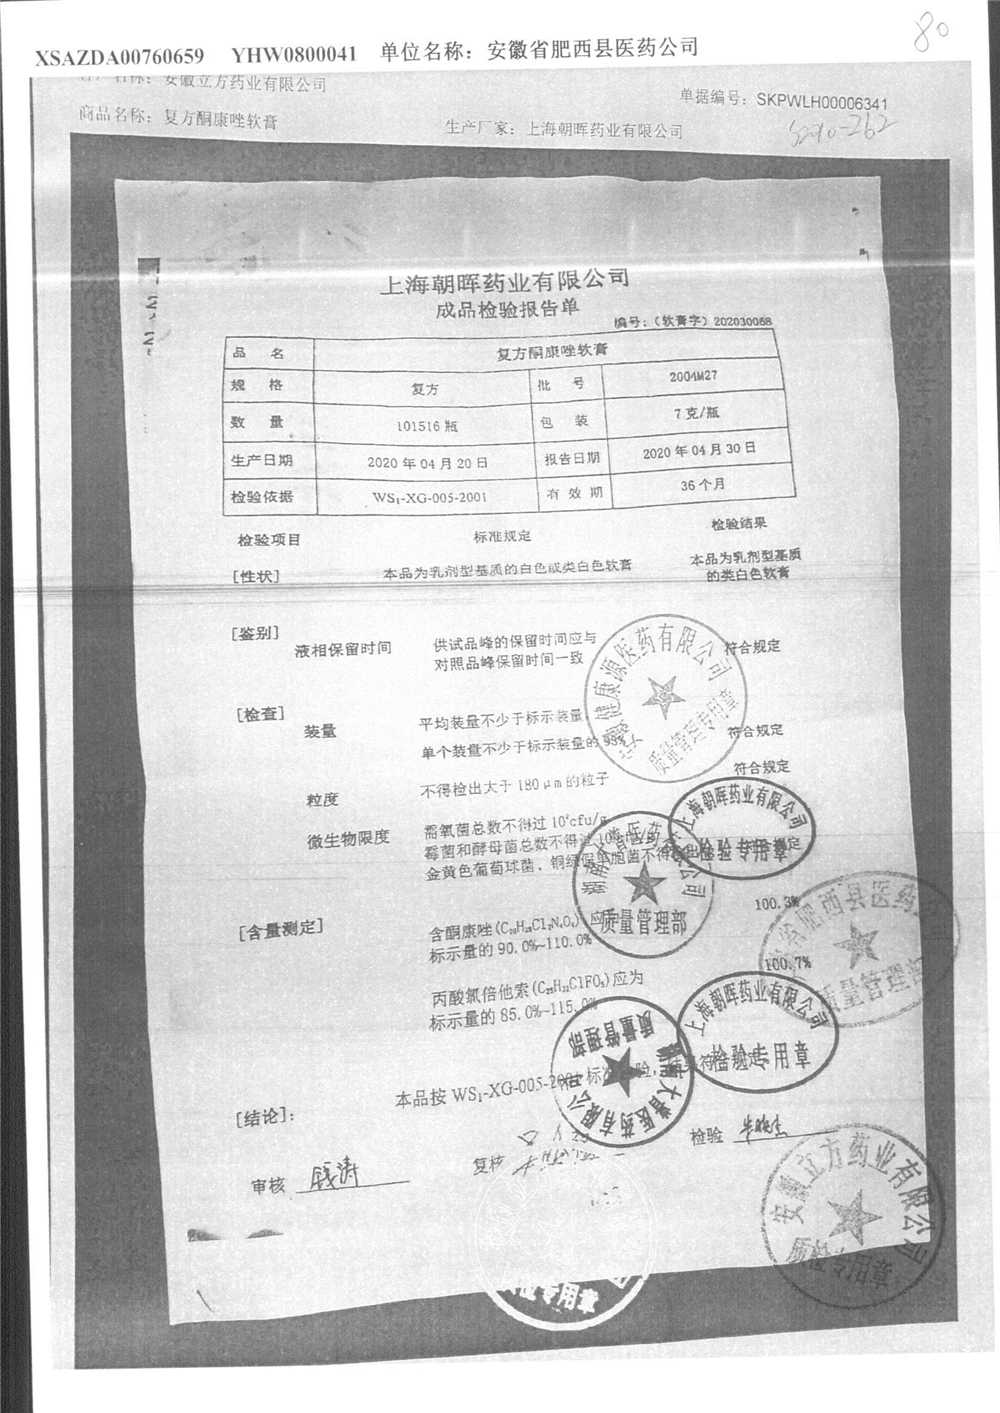 80
XSAZDA00760659 YHW0800041 单位名称：安徽省肥西县医药公司
客户名称：安徽立方药业有限公司
单据编号：SKPWLH00006341
商品名称：复方酮康唑软膏 生产厂家：上海朝晖药业有限公司
上海朝晖药业有限公司
成品检验报告单
编号：（软膏字）202030068
品名 复方酮康唑软膏
规格 复方 批号 2004M27
数量 101516瓶 包装 7克/瓶
生产日期 2020年04月20日 报告日期 2020年04月30日
检验依据 WS₁-XG-005-2001 有效期 36个月
检验项目 标准规定 检验结果
[性状] 本品为乳剂型基质的白色或类白色软膏 本品为乳剂型基质
的类白色软膏
[鉴别]
液相保留时间 供试品峰的保留时间应与 符合规定
对照品峰保留时间一致
[检查]
装量 平均装量不少于标示装量
单个装量不少于标示装量的93% 符合规定
粒度 不得检出大于180μm的粒子 符合规定
微生物限度 需氧菌总数不得过
霉菌和酵母菌总数不得过
金黄色葡萄球菌、铜绿假单胞菌不得检出
[含量测定] 含酮康唑 应 100.3%
标示量的90.0%~110.0%
丙酸氯倍他索(C₂₅H₃₂ClFO₅)应为 100.7%
标示量的85.0%~115.0%
[结论]： 本品按WS₁-XG-005-2001标准检验，结果符合规定
审核 钱涛 复核 检验
安徽健康源医药有限公司
质量管理专用章
上海朝晖药业有限公司
检验专用章
质量管理部
安徽省肥西县医药公司
质量管理部
上海朝晖药业有限公司
检验专用章
质量管理部
安徽立方药业有限公司
质检专用章
专用章